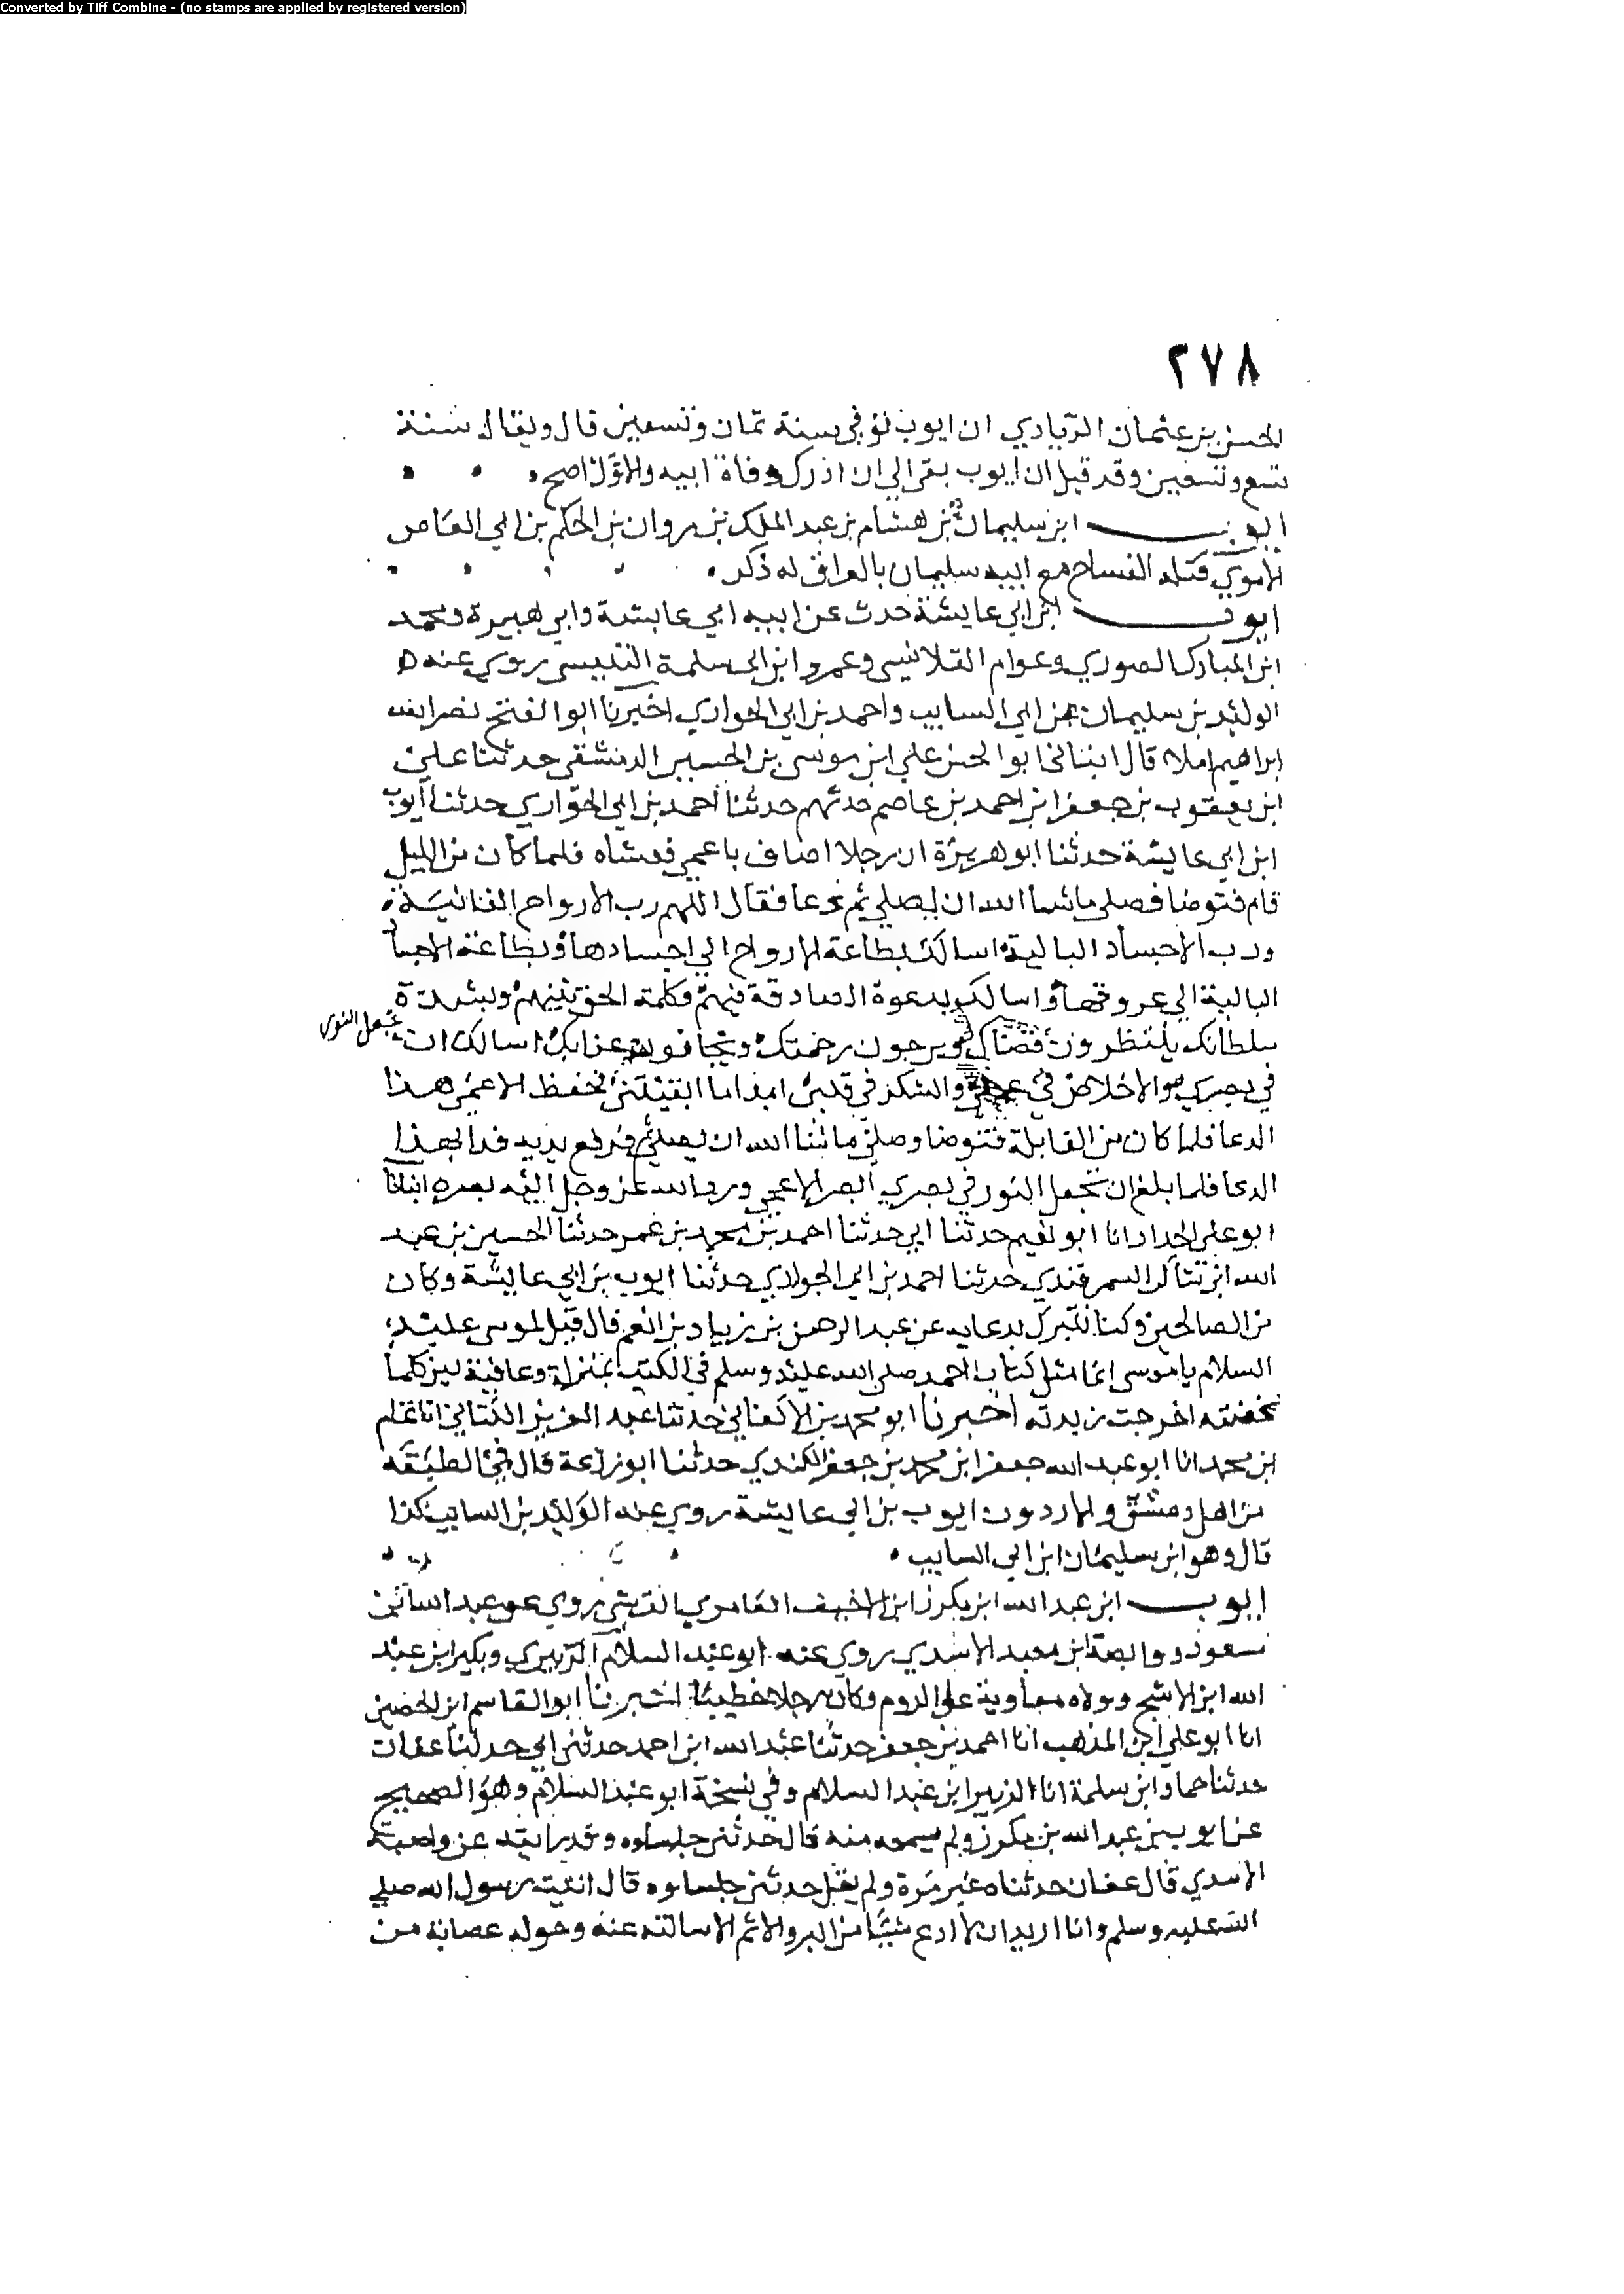 Converted by Tiff Combine - (no stamps are applied by registered version)
٢٧٨
الحسن بن عثمان الزيادي ان ايوب توفي سنة ثمان وتسعين قال ويقال سنة
تسع وتسعين وقد قيل ان ايوب بقي الى ان ادرك وفاة ابيه والاول اصح
ايوب ابن سليمان بن هشام بن عبد الملك بن مروان بن الحكم بن ابي العاص
الاموي قتله السفاح مع ابيه سليمان بالعراق له ذكر
ايوب ابن ابي عايشة حدث عن ابيه ابي عايشة وابي هبيرة ومحمد
ابن المبارك الصوري وعوام القلانسي وعمرو ابن ابي سلمة التنيسي روى عنه
الوليد بن سليمان بن ابي السايب واحمد بن ابي الحواري اخبرنا ابو الفتح نصر الله
ابراهيم املاء قال انباني ابو الحسن علي ابن موسى بن الحسين الدمشقي حدثنا علي
ابن يعقوب بن جعفر ابن احمد بن عاصم حدثهم حدثنا احمد بن ابي الحواري حدثنا ايوب
ابن ابي عايشة حدثنا ابو هريرة ان رجلا اضاف باعمي فعشاه فلما كان من الليل
قام فتوضا فصلى ما شا الله ان يصلي ثم دعا فقال اللهم رب الارواح الفانية
ورب الاجساد البالية اسالك بطاعة الارواح الى اجسادها وبطاعة الاجساد
البالية الى عروقها واسالك بدعوة الصادقة فيهم وكلمة الحق بينهم وبشدة
سلطانك ينتظرون قضاك ويرجون رحمتك ويخافون عذابك اسالك ان تجعل النور
في بصري والاخلاص في عملي والشكر في قلبي ابدا ما ابقيتني فحفظ الاعمى هذا
الدعا فلما كان من القابلة فتوضا وصلى ما شا الله ان يصلي ثم رفع يديه فدعا بهذا
الدعا فلما بلغ ان تجعل النور في بصري ابصر الاعمي ورد الله عز وجل اليه بصره انبانا
ابو علي الحداد انا ابو نعيم حدثنا ابي حدثنا احمد بن محمد بن عمر حدثنا الحسين بن عبد
الله ابن شاكر السمرقندي حدثنا احمد بن ابي الحواري حدثنا ايوب بن ابي عايشة وكان
من الصالحين وكنا نتبرك بدعايه عن عبد الرحمن بن زياد بن انعم قال قيل لموسى عليه
السلام يا موسى انما مثل كتاب احمد صلى الله عليه وسلم في الكتب بمنزلة وعا فيه لبن كلما
مخضته اخرجت زبدته اخبرنا ابو محمد بن الاكفاني حدثنا عبد العزيز الكتاني انا تمام
ابن محمد انا ابو عبد الله جعفر ابن محمد بن جعفر الكندي حدثنا ابو زرعة قال في الطبقة
من اهل دمشق والاردون ايوب بن ابي عايشة روى عنه الوليد بن السايب كذا
قال وهو ابن سليمان ابن ابي السايب
ايوب ابن عبد الله ابن مكرز ابن الاخيف العامري القرشي روى عن عبد الله ابن
مسعود ووابصة ابن معبد الاسدي روى عنه ابو عبد السلام الزبيري وبكير ابن عبد
الله ابن الاشج وولاه معاوية على الروم وكان رجلا خطيبا اخبرنا ابو القاسم ابن الحصين
انا ابو علي ابن المذهب انا احمد بن جعفر حدثنا عبد الله ابن احمد حدثني ابي حدثنا عفان
حدثنا حماد ابن سلمة انا الزبير ابن عبد السلام وفي نسخة ابو عبد السلام وهو الصحيح
عن ايوب بن عبد الله بن مكرز ولم يسمعه منه قال حدثني جلساوه وقد رايته عن وابصة
الاسدي قال عفان حدثناه غير مرة ولم يقل حدثني جلساوه قال اتيت رسول الله صلى
الله عليه وسلم وانا اريد ان لا ادع شيئا من البر والاثم الا سالته عنه وحوله عصابة من